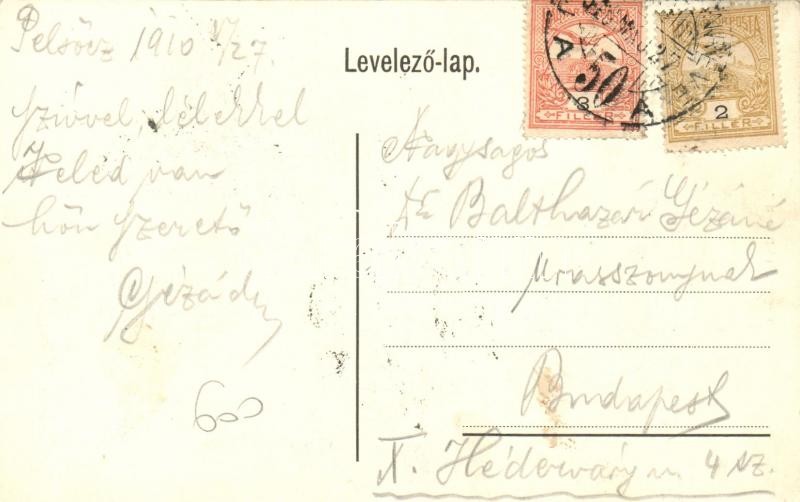 Pelsőcz 1910 V/27.
Szivvel, lélekkel
Veled van
hőn szerető
Gézád
600
Levelező-lap.
50
3
FILLÉR
2
FILLÉR
Nagyságos
Balthazár Gézáné
Urasszonynak
Budapest
X. Hédervári u. 4 sz.